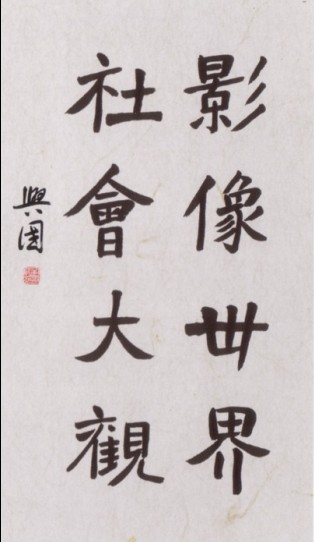 影像世界
社會大觀
興國